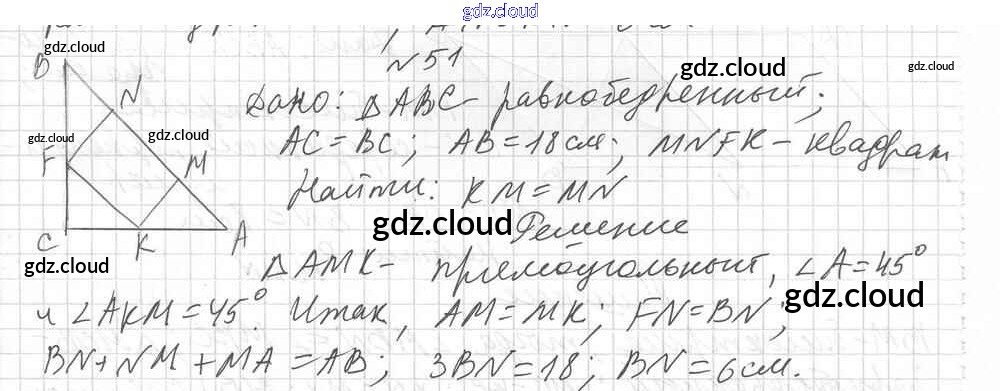 gdz.cloud
№51
gdz.cloud
gdz.cloud
gdz.cloud
B
N
Дано: △ABC - равнобедренный;
gdz.cloud
gdz.cloud
AC = BC; AB = 18 см; MNFK - квадрат
F
M
Найти: KM = MN
gdz.cloud
Решение
C
K
A
gdz.cloud
△AMK - прямоугольный, ∠A = 45°
gdz.cloud
и ∠AKM = 45°. Итак, AM = MK; FN = BN;
BN + NM + MA = AB; 3BN = 18; BN = 6 см.